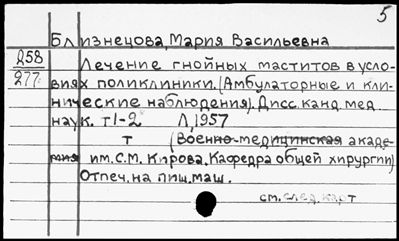 5
Близнецова, Мария Васильевна
258 Лечение гнойных маститов в усло-
277 виях поликлиники. (Амбулаторные и кли-
нические наблюдения). Дисс. канд. мед.
наук. т 1-2 Л, 1957
т (Военно-медицинская акаде-
мия им. С.М. Кирова. Кафедра общей хирургии)
Отпеч. на пиш. маш.
см. след. карт